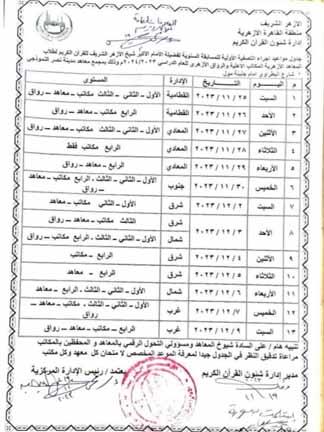 الأزهر الشريف
منطقة القاهرة الأزهرية
إدارة شئون القرآن الكريم
جدول مواعيد إجراء التصفية الأولية للمسابقة السنوية لفضيلة الأمام الأكبر شيخ الأزهر الشريف للقرآن الكريم لطلاب
المعاهد الأزهرية المكاتب الأهلية والرواق الأزهري للعام الدراسي ٢٠٢٤/٢٠٢٣ م وذلك بمجمع معاهد مدينة نصر النموذجي
م اليوم التاريخ الإدارة المستوى
١ السبت ٢٠٢٣/١١/٢٥ القطامية الأول – الثاني – الثالث مكاتب – معاهد – رواق
٢ الأحد ٢٠٢٣/١١/٢٦ القطامية الرابع مكاتب – معاهد – رواق
٣ الأثنين ٢٠٢٣/١١/٢٧ المعادي الأول – الثاني – الثالث مكاتب – معاهد – رواق
٤ الثلاثاء ٢٠٢٣/١١/٢٨ المعادي الرابع مكاتب فقط
٥ الأربعاء ٢٠٢٣/١١/٢٩ المعادي الرابع معاهد – رواق
٦ الخميس ٢٠٢٣/١١/٣٠ جنوب الأول – الثاني – الثالث – الرابع مكاتب – معاهد – رواق
٧ السبت ٢٠٢٣/١٢/٢ شرق الأول – الثاني مكاتب – معاهد
٨ الأحد ٢٠٢٣/١٢/٣ شرق الثالث مكاتب – معاهد
شمال الأول – الثاني – الثالث – الرابع مكاتب – معاهد – رواق
٩ الأثنين ٢٠٢٣/١٢/٤ شرق الرابع – مكاتب
١٠ الثلاثاء ٢٠٢٣/١٢/٥ شرق الرابع – معاهد
١١ الأربعاء ٢٠٢٣/١٢/٦ شمال الأول – الثاني – الثالث – الرابع – معاهد
١٢ الخميس ٢٠٢٣/١٢/٧ غرب الأول – الثاني – الثالث – الرابع مكاتب – معاهد – رواق
١٣ السبت ٢٠٢٣/١٢/٩ غرب الرابع مكاتب – معاهد – رواق
تنبيه هام / على السادة شيوخ المعاهد ومسؤولي التحول الرقمي بالمعاهد و المحفظين بالمكاتب
مراعاة تدقيق النظر في الجدول جيدا لمعرفة الموعد المخصص لامتحان كل معهد وكل مكتب
مدير إدارة شئون القرآن الكريم
يعتمد / رئيس الإدارة المركزية